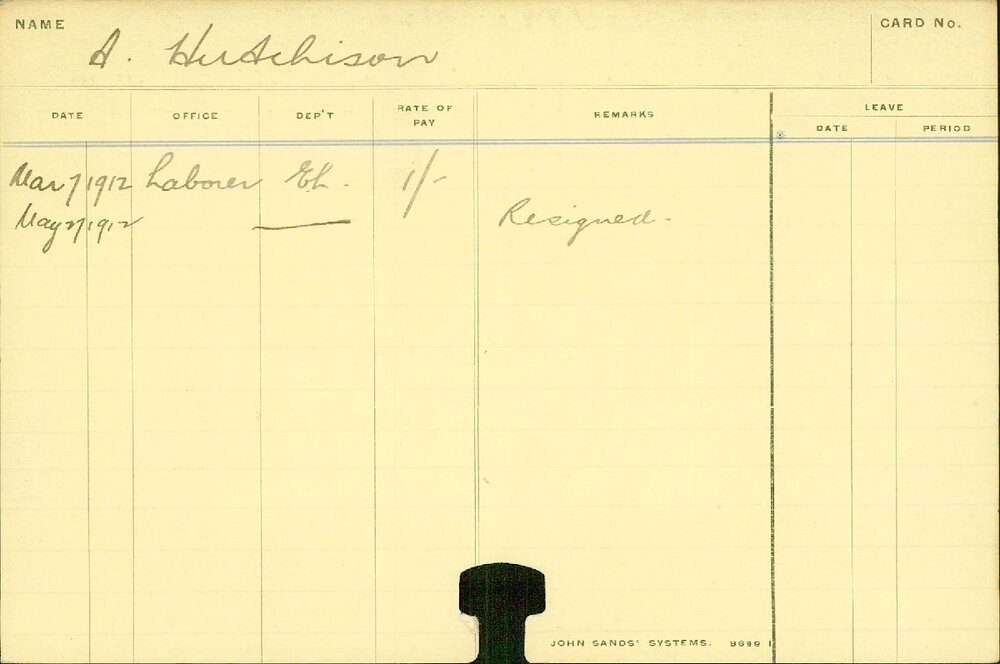 NAME
A. Hutchison
CARD No.
DATE OFFICE DEP'T RATE OF PAY REMARKS LEAVE
DATE PERIOD
Mar 7 1912 Laborer Eh. 1/-
May 27 1912 — Resigned.
JOHN SANDS' SYSTEMS. 8699 1